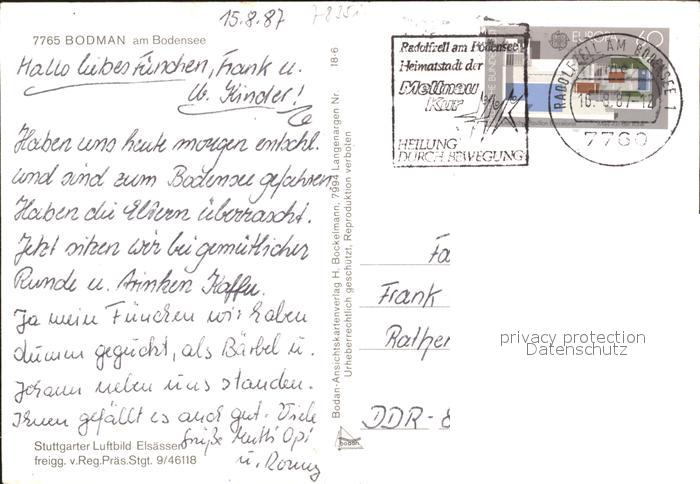 15.8.87
7765 BODMAN am Bodensee
Hallo liebes Fünchen, Frank u.
lb. Kinder!
Haben uns heute morgen entschl.
und sind zum Bodensee gefahren.
Haben die Eltern überrascht.
Jetzt sitzen wir bei gemütlicher
Runde u. trinken Kaffee.
Ja mein Fünchen wir haben
dumm geguckt, als Bärbel u.
Johann neben uns standen.
Ihnen gefällt es auch gut. Viele
Grüße Mutti Opi
u. Ronny
Stuttgarter Luftbild Elsässer
freigg. v.Reg.Präs.Stgt. 9/46118
18-6
Bodan-Ansichtskartenverlag H. Bockelmann, 7994 Langenargen Nr.
Urheberrechtlich geschützt, Reproduktion verboten
bodan
Radolfzell am Bodensee
Heimatstadt der
Mettnau
Kur
HEILUNG
DURCH BEWEGUNG
EUROPA 60
RADOLFZELL AM BODENSEE 1
16.-8.87-12
7760
Fa
Frank
Rathen
DDR-8
privacy protection
Datenschutz